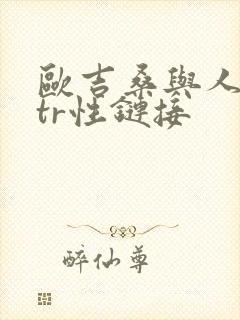 歐吉桑與人
tr性鏈接
醉仙尊